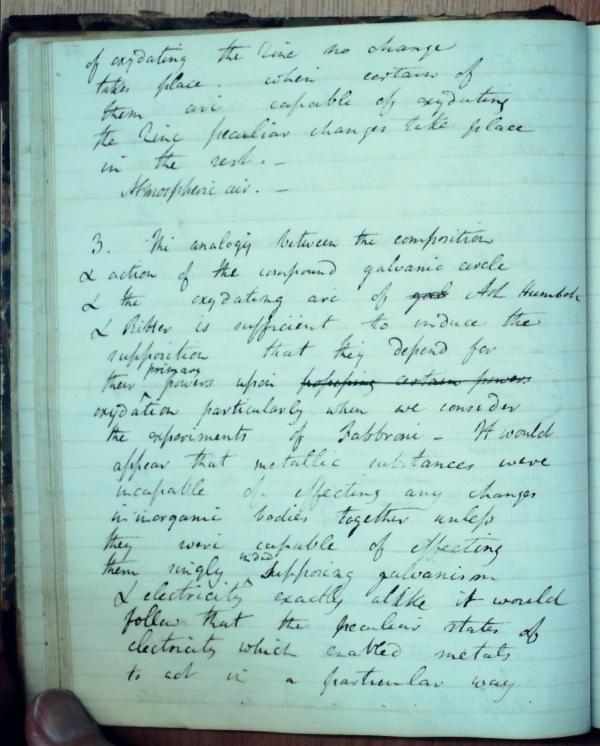 of oxydating the Zinc no change
takes place. when certain of
them are capable of oxydating
the Zinc peculiar changes take place
in the rest. –
Atmospheric air. –
3. The analogy between the composition
& action of the compound galvanic circle
& the oxydating arc of Ash Humboldt
& Ritter is sufficient to induce the
supposition that they depend for
their primary powers upon possessing certain powers
oxydation particularly when we consider
the experiments of Fabbroni – It would
appear that metallic substances were
incapable of effecting any changes
in inorganic bodies together unless
they were capable of effecting
them singly indeed Supposing galvanism
& electricity exactly alike it would
follow that the peculiar states of
electricity which enabled metals
to act in a particular way